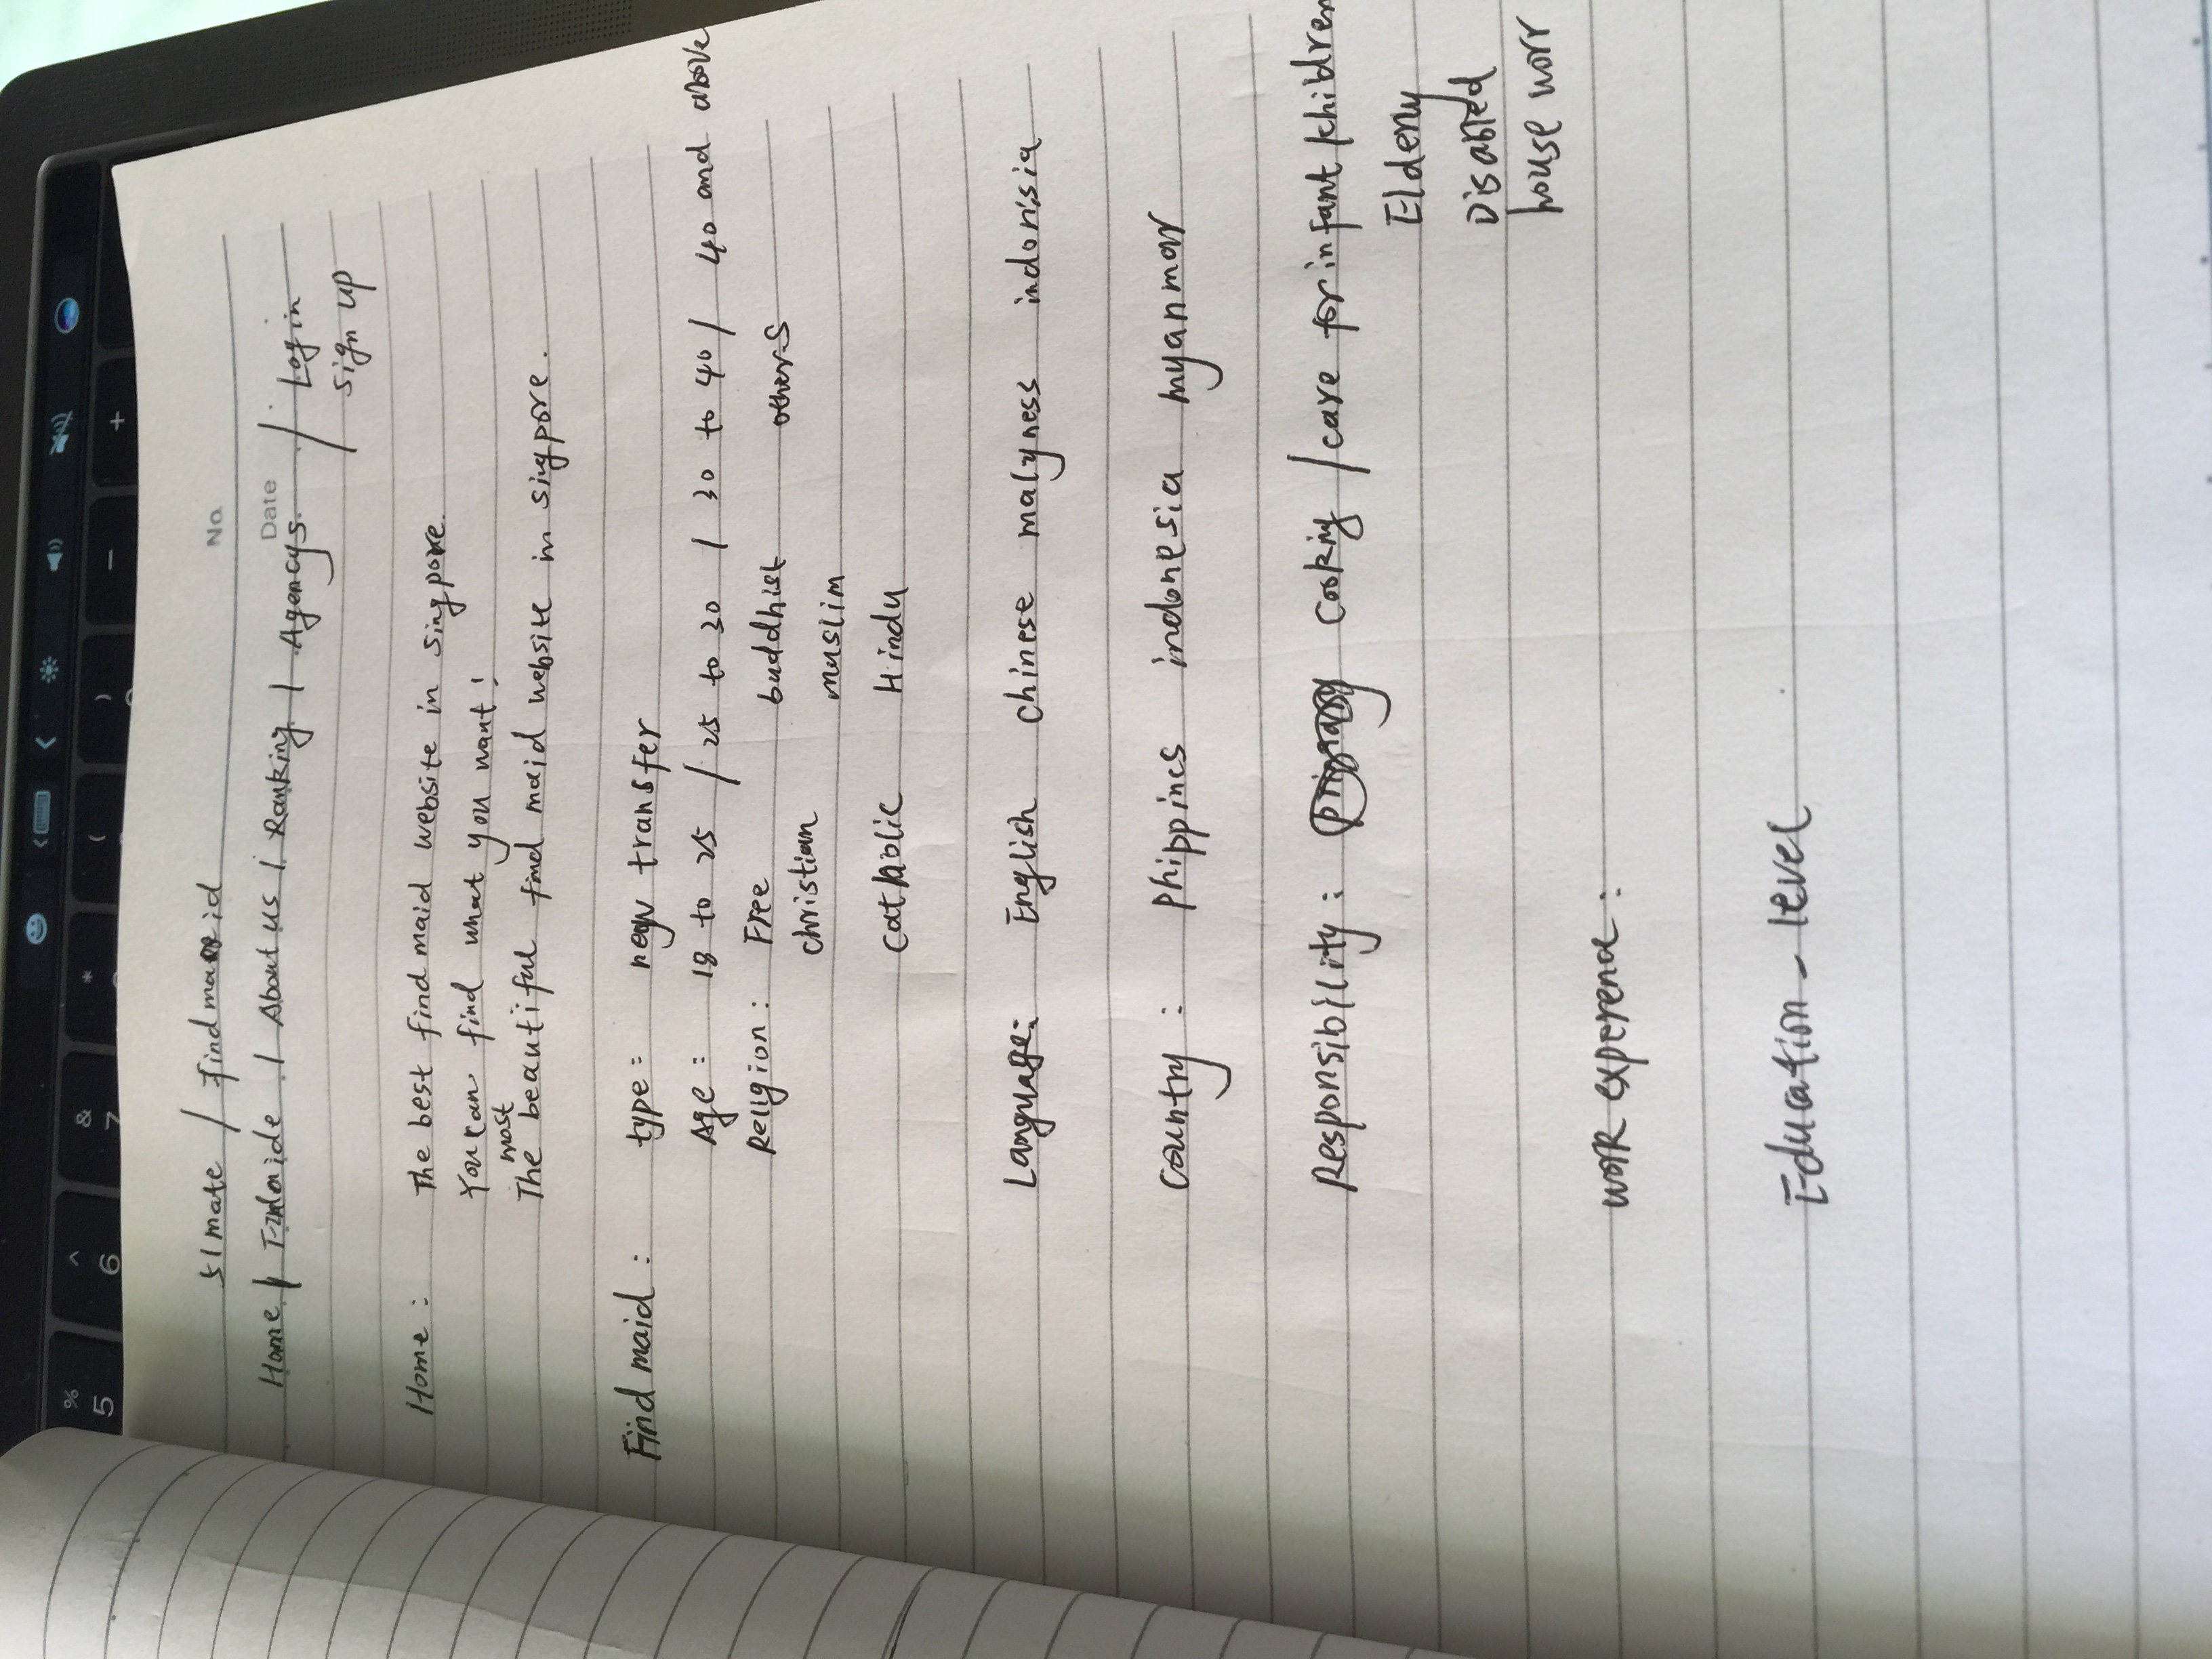 % ^ & * ( ) - +
5 6 7
51mate / Findmaid
No.
Date
Home | | About us | Ranking | Agencys / Login
sign up
Home : The best find maid website in singpore.
You can find what you want!
most
The beautiful find maid website in singpore.
Find maid : type : new transfer
Age : 18 to 25 / 25 to 30 / 30 to 40 / 40 and above
Religion : Free buddhist others
christian muslim
catholic Hindu
Language: English chinese malyness indonisia
country : phippines indonesia myanmar
Responsibility : cooking / care for infant /children
Elderly
Disabled
house worr
work experence :
Education - level